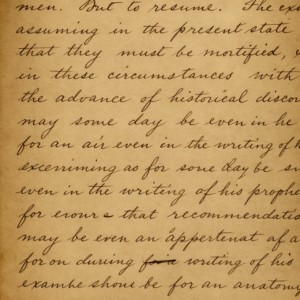 men. But to resume. The
assuming in the present state
that they must be mortified,
in these circumstances with
the advance of historical discov
may some day be even in he
for an air even in the writing of h
as for sone day be
even in the writing of his prophe
for that recommendatio
may be even an appertenat of a
for on during for a writing of his
examhe shoui be for an anatomy